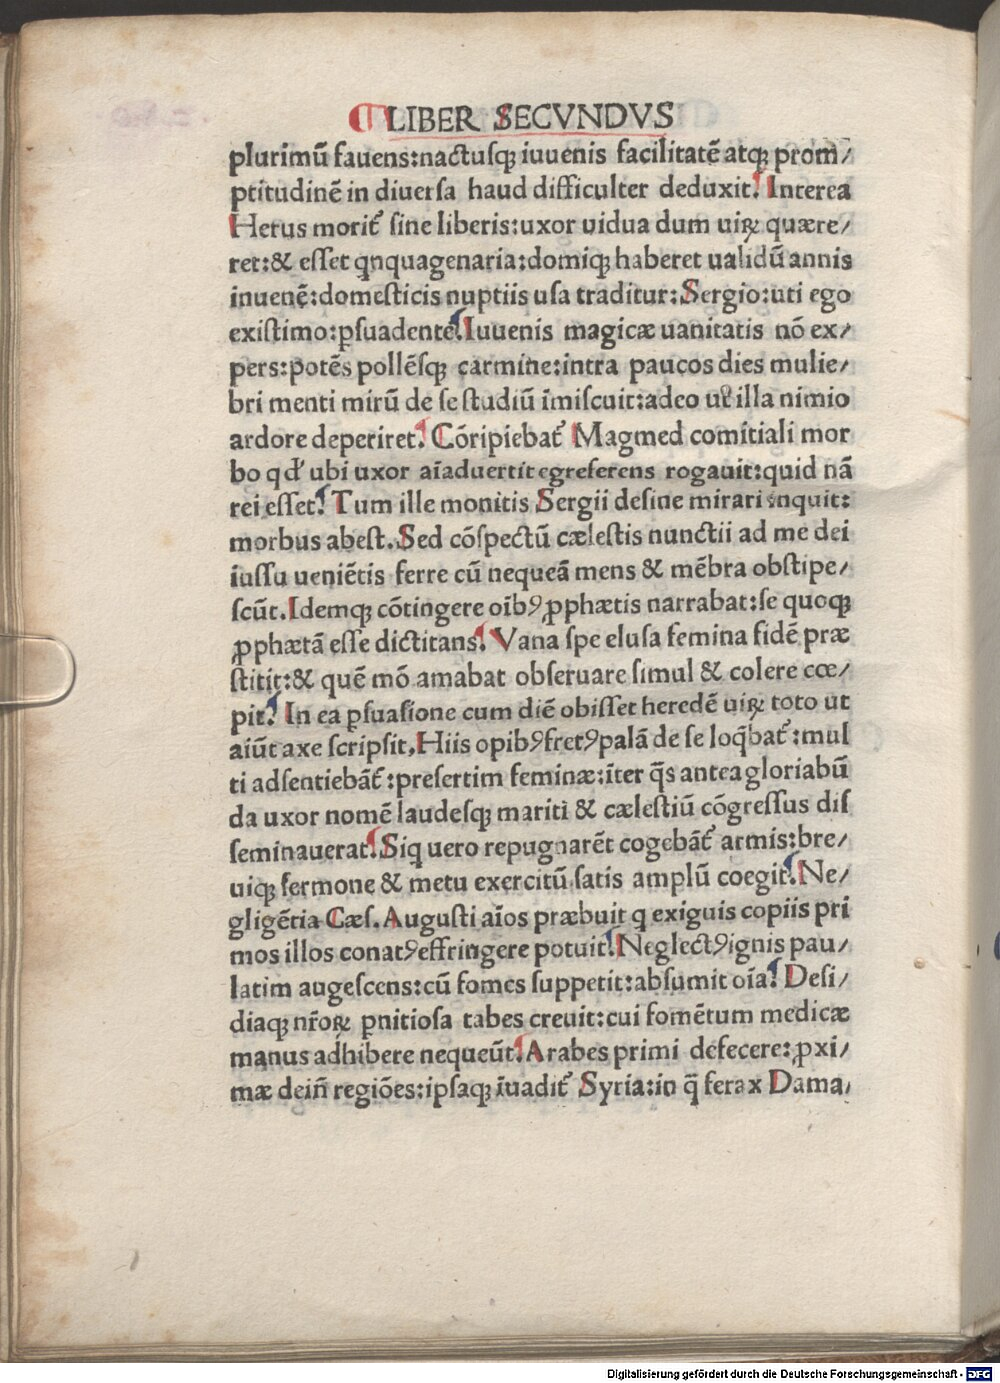 LIBER SECVNDVS
plurimū fauens:nactuſqꝫ iuuenis facilitatē atqꝫ prom/
ptitudinē in diuerſa haud difficulter deduxit. Interea
Herus moritᷣ ſine liberis:uxor uidua dum uiꝝ quære/
ret:& eſſet qnquagenaria:domiqꝫ haberet ualidū annis
inuenē:domeſticis nuptiis uſa traditur:Sergio:uti ego
exiſtimo:ꝑſuadente. Iuuenis magicæ uanitatis nō ex/
pers:potēs pollēſqꝫ carmine:intra paucos dies mulie/
bri menti mirū de ſe ſtudiū īmiſcuit:adeo ut illa nimio
ardore deperiret. Cōripiebatᷣ Magmed comitiali mor
bo qd' ubi uxor aīaduertit egreferens rogauit:quid nā
rei eſſet. Tum ille monitis Sergii deſine mirari inquit:
morbus abeſt. Sed cōſpectū cæleſtis nunctii ad me dei
iuſſu ueniētis ferre cū nequeā mens & mēbra obſtipe/
ſcūt. Idemqꝫ cōtingere oībꝰ ꝓphætis narrabat:ſe quoqꝫ
ꝓphætā eſſe dictitans. Vana ſpe eluſa femina fidē præ
ſtitit:& quē mō amabat obſeruare ſimul & colere cœ/
pit. In ea ꝑſuaſione cum diē obiſſet heredē uiꝝ toto ut
aiūt axe ſcripſit, Hiis opibꝰ fretꝰ palā de ſe loq̄batᷣ:mul
ti adſentiebātᷣ:preſertim feminæ:īter q̄s antea gloriabū
da uxor nomē laudeſqꝫ mariti & cæleſtiū cōgreſſus diſ
ſeminauerat. Siq uero repugnarēt cogebātᷣ armis:bre/
uiqꝫ ſermone & metu exercitū ſatis amplū coegit. Ne/
gligētia Cæſ. Auguſti aīos præbuit q exiguis copiis pri
mos illos conatꝰ effringere potuit. Neglectꝰ ignis pau/
latim augeſcens:cū fomes ſuppetit:abſumit oīa. Deſi/
diaqꝫ nr̄oꝝ ꝑnitioſa tabes creuit:cui fomētum medicæ
manus adhibere nequeūt. Arabes primi defecere:ꝓxi/
mæ deiñ regiōes:ipſaqꝫ īuaditᷣ Syria:in q̄ ferax Dama/
Digitalisierung gefördert durch die Deutsche Forschungsgemeinschaft - DFG